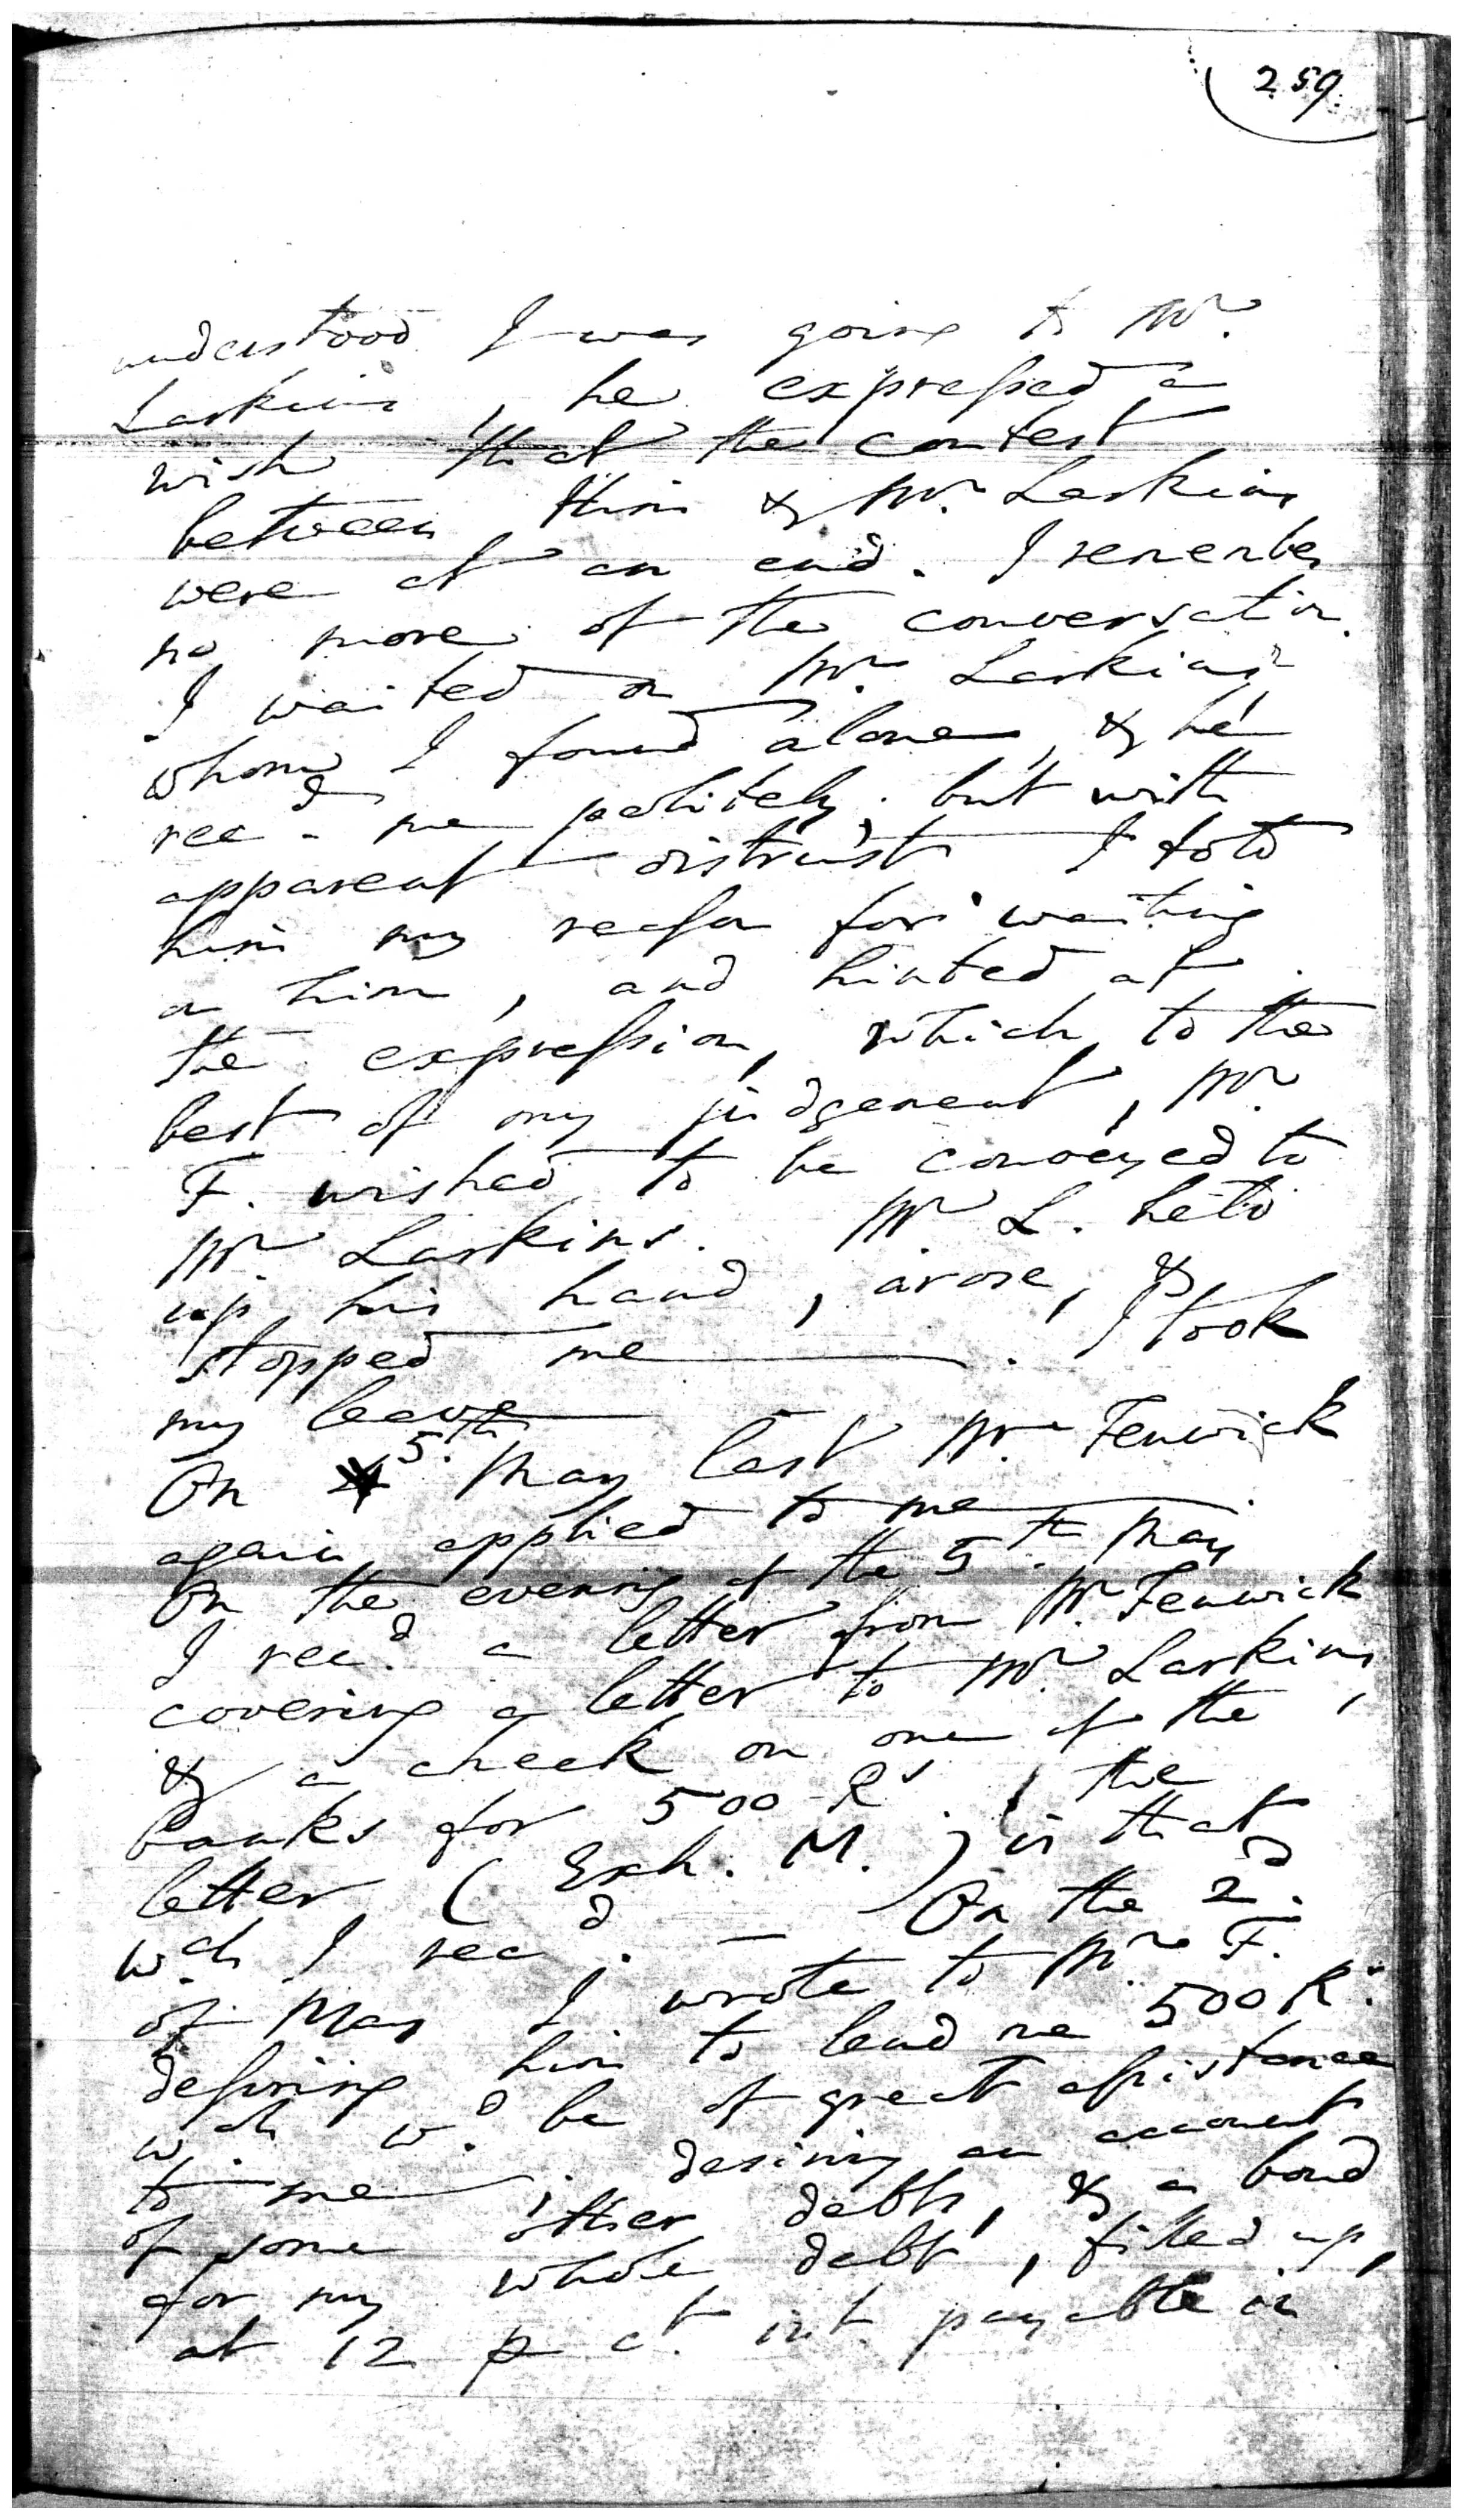 259
understood I was going to Mr.
Larkins, he expressed a
wish that the contest
between him & Mr. Larkins
were at an end. I remember
no more of the conversation.
I waited on Mr. Larkins
whom I found alone, & he
recd me politely, but with
apparent distrust I told
him my reason for waiting
on him, and hinted at
the expression, which, to the
best of my judgement, Mr
F. wished to be conveyed to
Mr Larkins. Mr L. held
up his hand, arose, &
stopped me. I took
my leave
On 5th May last Mr Fenwick
again applied to me
On the evening of the 5th May
I recd a letter from Mr. Fenwick
covering a letter to Mr Larkins,
& a check on one of the
banks for 500 Rs. the
letter (Exh. M.) is that
wch I recd. — On the 2d.
of May I wrote to Mr. F.
desiring him to lend me 500 Rs.
wch wd. be of great assistance
to me, desiring an account
of some other debts, & a bond
for my whole debt, filled up,
at 12 p ct. int. payable in